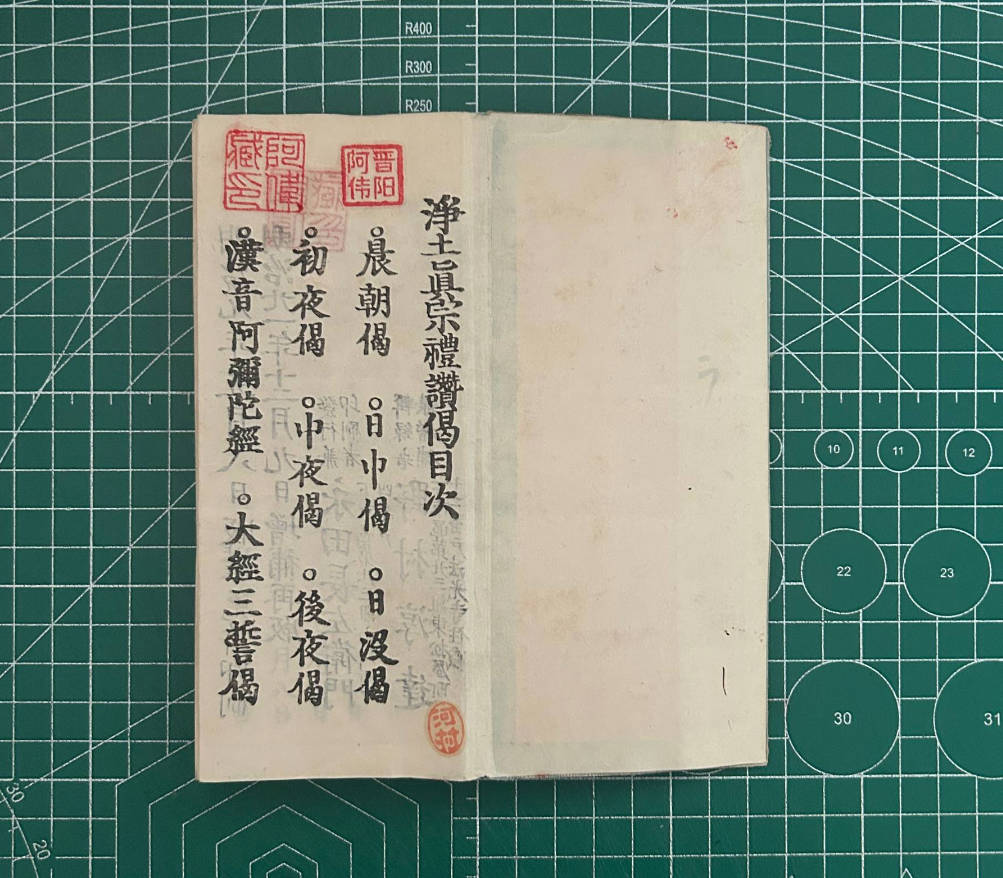 淨土眞宗禮讚偈目次
○晨朝偈 ○日中偈 ○日没偈
○初夜偈 ○中夜偈 ○後夜偈
○漢音阿彌陀經 ○大經三誓偈
晋阳阿伟
阿偉藏印
河村
R400
R300
R250
10
11
12
22
23
30
31
30
20